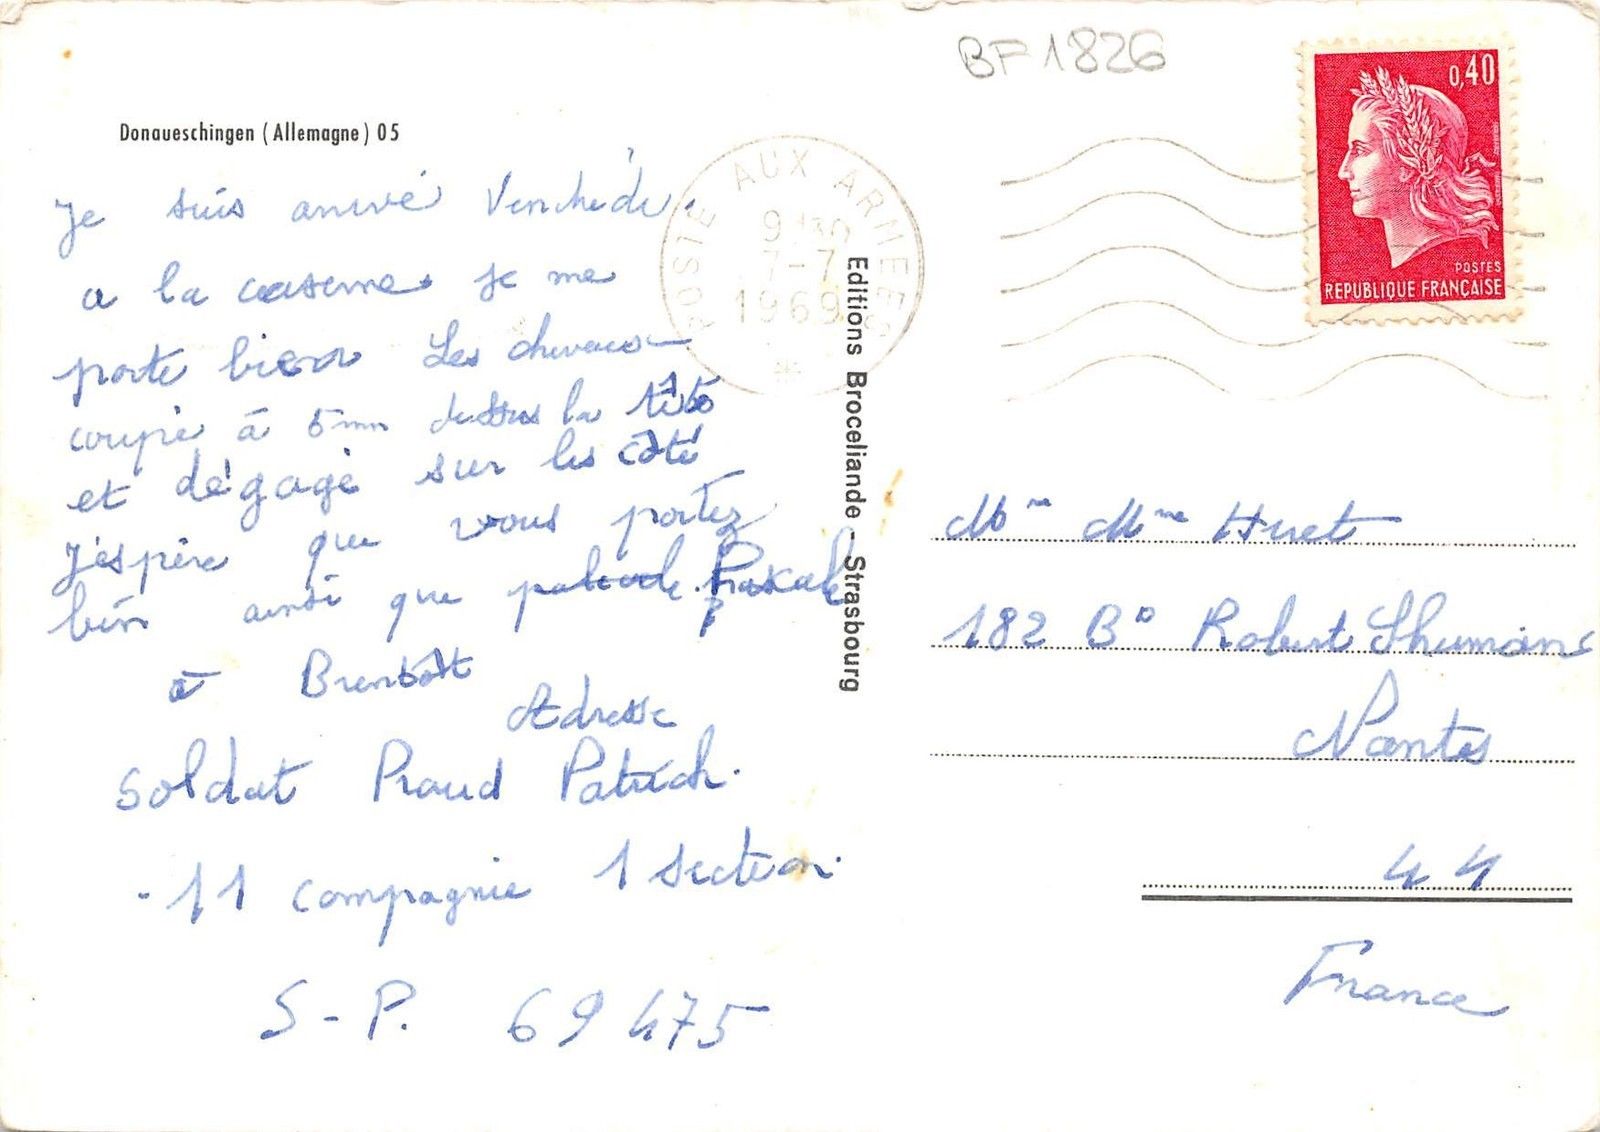 BF 1826
0,40
POSTES
REPUBLIQUE FRANÇAISE
POSTE AUX ARMEES
9 H30
7-7
1969
Donaueschingen (Allemagne) 05
Je suis arrivé
a la caserne. Je me
porte bien Les cheveux
coupé à 5mm dessus la tête
et dégagé sur les côté
J'éspère que vous portez
bien ainsi que Pascale
à
Adresse
Soldat Praud Patrick.
- 11 compagnie 1 section.
S-P. 69 475
Editions Broceliande - Strasbourg
Mr Mme Huet
182 Bd Robert Shuman
Nantes
44
France